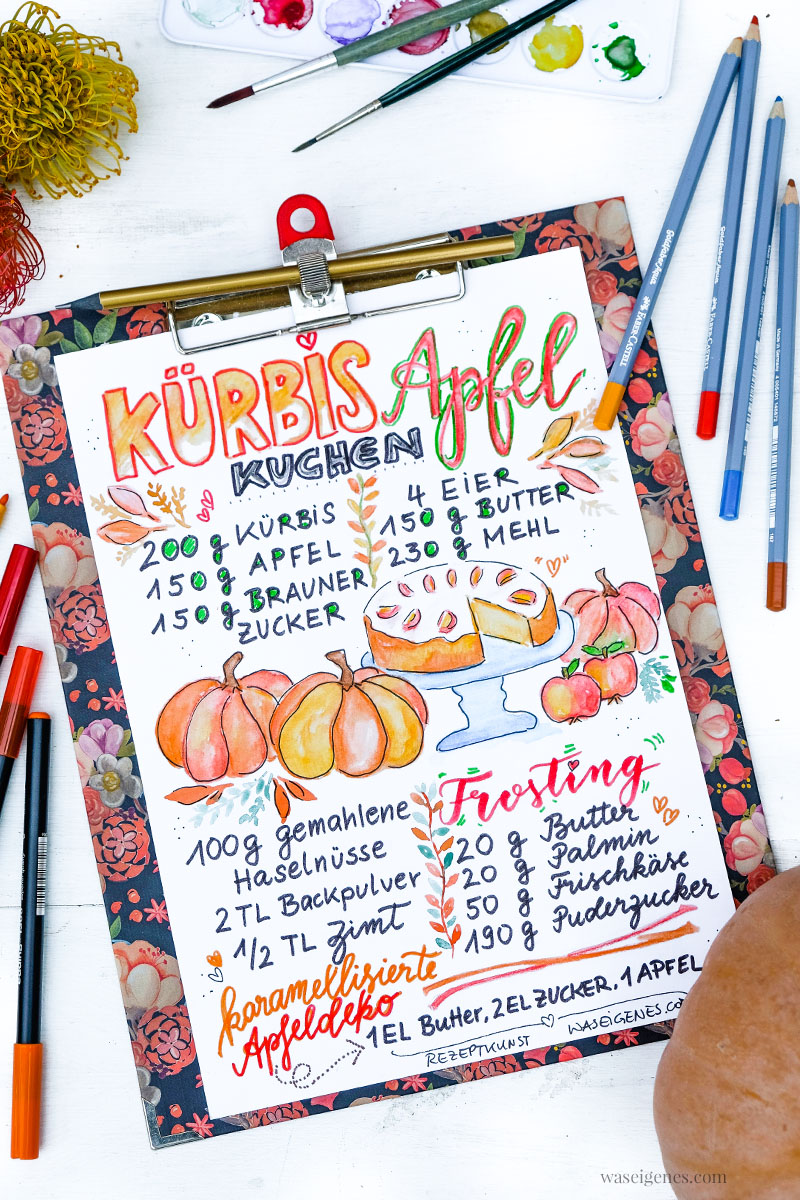 KÜRBIS Apfel
KUCHEN
200 g KÜRBIS
150 g APFEL
150 g BRAUNER
ZUCKER
4 EIER
150 g BUTTER
230 g MEHL
100g gemahlene
Haselnüsse
2 TL Backpulver
1/2 TL Zimt
Frosting
20 g Butter
20 g Palmin
50 g Frischkäse
190 g Puderzucker
karamellisierte
Apfeldeko
1 EL Butter, 2 EL ZUCKER, 1 APFEL
REZEPTKUNST
WASEIGENES.CO
FABER-CASTELL
Goldfaber Aqua
waseigenes.com